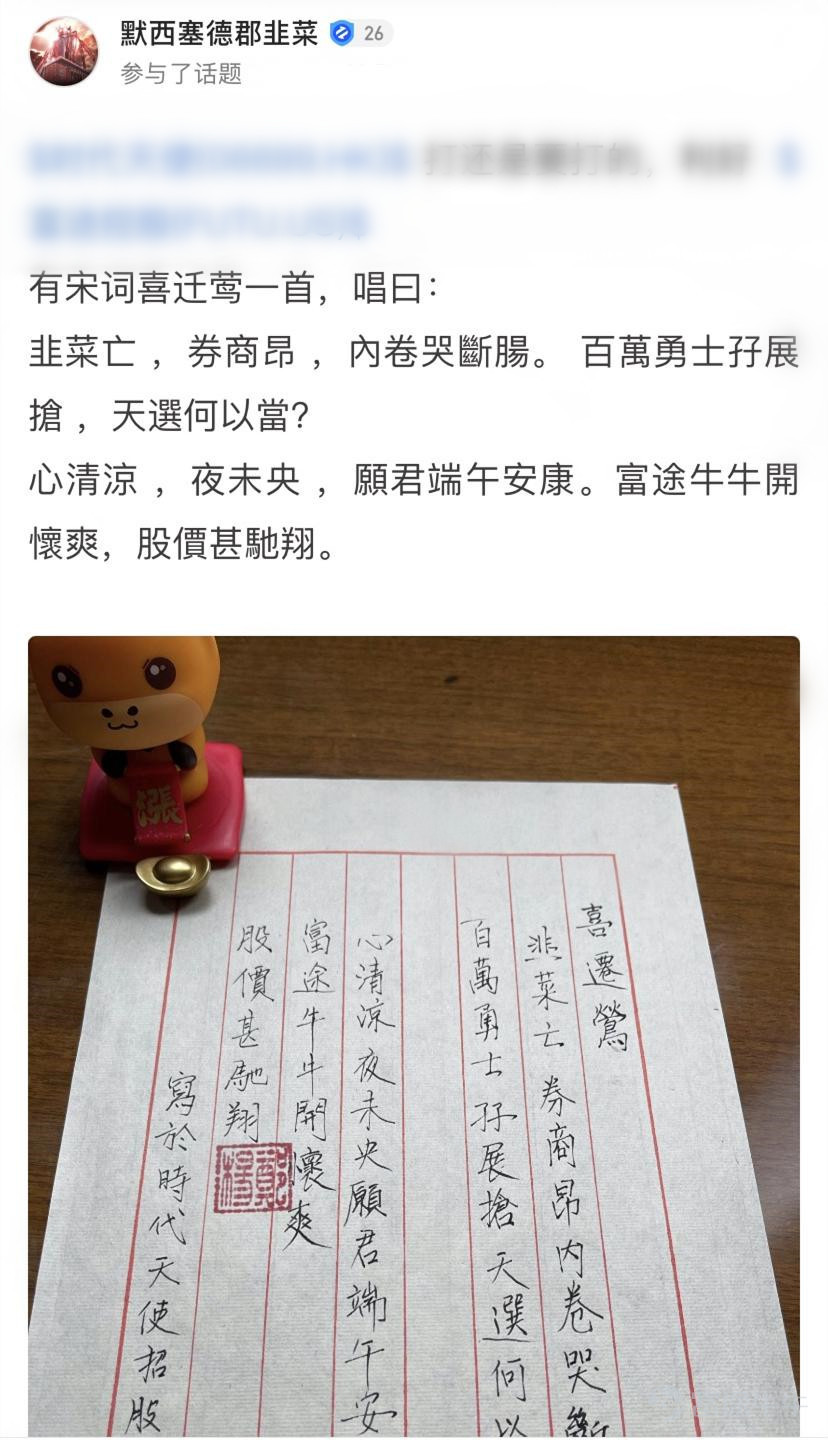 默西塞德郡韭菜 26
参与了话题
有宋词喜迁莺一首，唱曰：
韭菜亡 ，券商昂 ，內卷哭斷腸。 百萬勇士孖展
搶 ，天選何以當？
心清涼 ，夜未央 ，願君端午安康。富途牛牛開
懷爽，股價甚馳翔。
漲
喜遷鶯
韭菜亡 券商昂 內卷哭斷
百萬勇士孖展搶 天選何以
心清涼夜未央願君端午安
富途牛牛開懷爽
股價甚馳翔
寫於時代天使招股